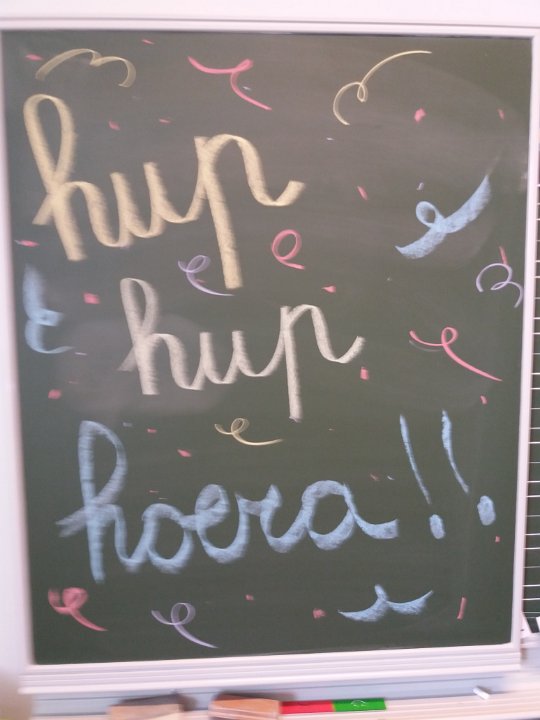 hup
hup
hoera!!